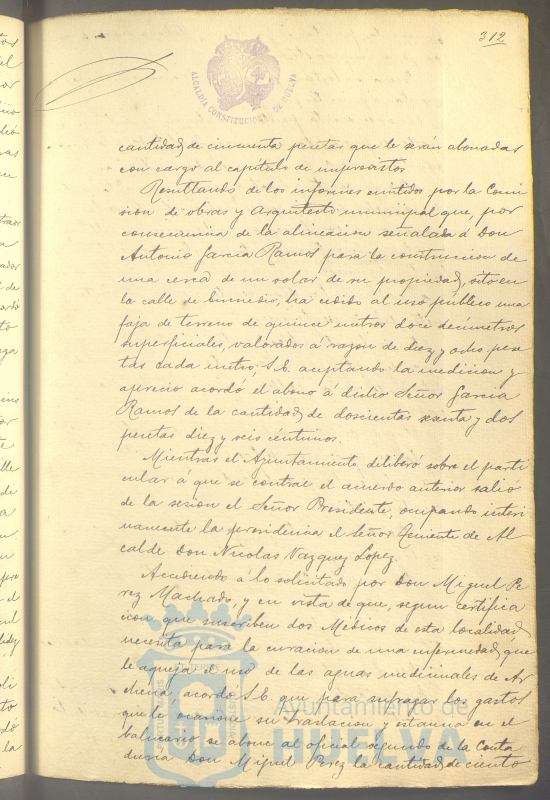 312
ALCALDIA CONSTITUCIONAL DE HUELVA
cantidad de cincuenta pesetas que le serán abonadas
con cargo al capitulo de imprevistos
Resultando de los informes emitidos por la Comi
sion de obras y Arquitecto municipal que, por
consecuencia de la alineacion señalada á Don
Antonio Garcia Ramos para la construccion de
una cerca de un solar de su propiedad, sito en
la calle de ha cedido al uso público una
faja de terreno de quince metros doce decímetros
superficiales, valorados á razon de diez y ocho pese
tas cada metro, S.E. aceptando la medicion y
aprecio acordó el abono á dicho Señor Garcia
Ramos de la cantidad de doscientas setenta y dos
pesetas diez y seis céntimos.
Mientras el Ayuntamiento deliberó sobre el parti
cular á que se contrae el acuerdo anterior salió
de la sesion el Señor Presidente, ocupando interi
namente la presidencia el Señor Teniente de Al
calde Don Nicolas Vazquez Lopez.
Accediendo á lo solicitado por Don Miguel Pe
rez Machado, y en vista de que, segun certifica
cion que suscriben dos Médicos de esta localidad,
necesita para la curacion de una enfermedad que
le aqueja el uso de las aguas medicinales de Ar
chena, acordó S.E. que para sufragar los gastos
que le ocasione su traslacion y estancia en el
balneario se abone al oficial segundo de la Conta
duria Don Miguel Perez la cantidad de ciento
Ayuntamiento de
HUELVA